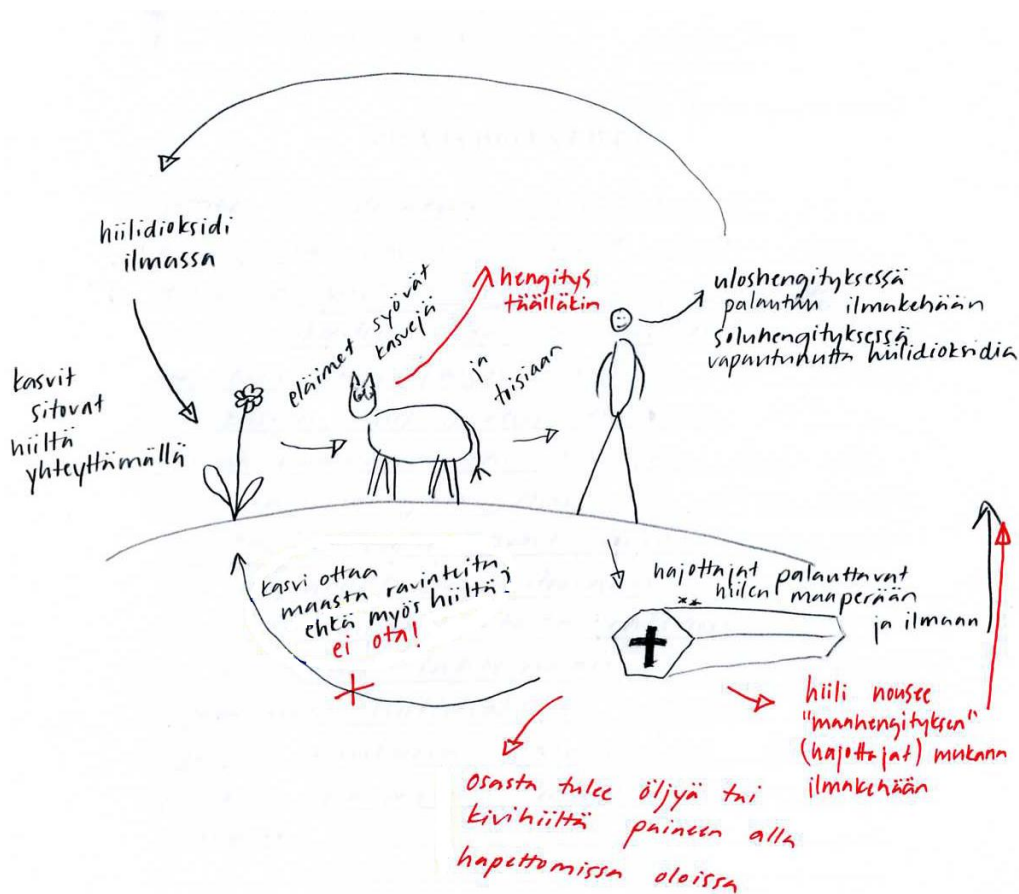 hiilidioksidi
ilmassa
kasvit
sitovat
hiiltä
yhteyttämällä
eläimet syövät
kasveja
hengitys
täälläkin
ja
toisiaan
uloshengityksessä
palautuu ilmakehään
soluhengityksessä
vapautunutta hiilidioksidia
kasvi ottaa
maasta ravinteita,
ehkä myös hiiltä?
ei ota!
hajottajat palauttavat
hiilen maaperään
ja ilmaan
hiili nousee
"maahengityksen"
(hajottajat) mukana
ilmakehään
Osasta tulee öljyä tai
kivihiiltä paineen alla
hapettomissa oloissa